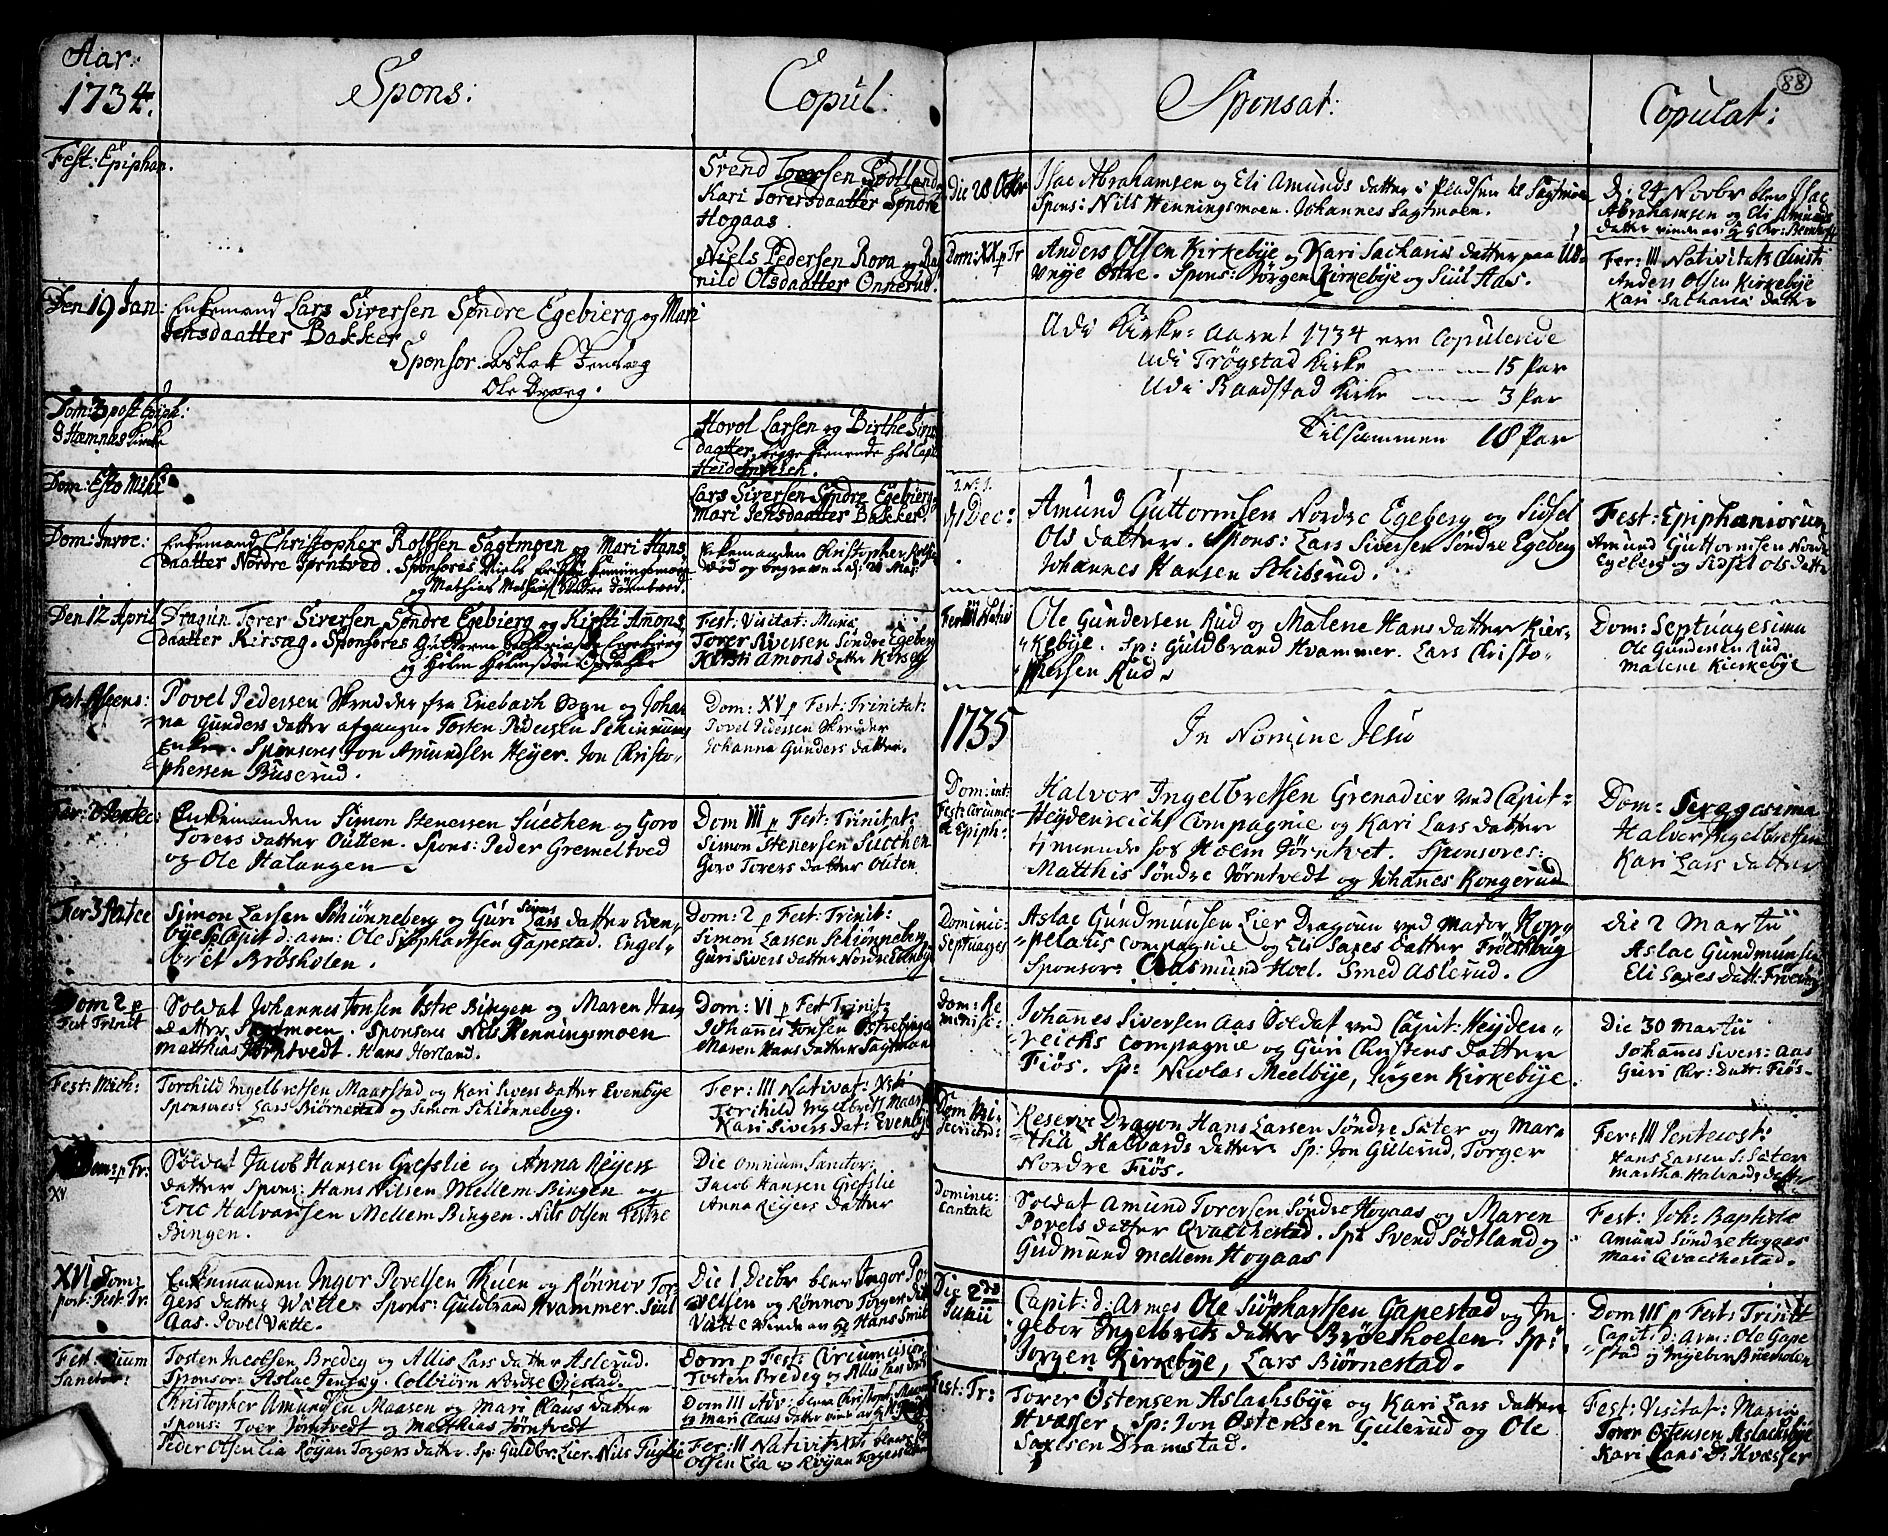 Aar:
1734.
Spons:
Copul:
Fest: Epiphan.
Svend Toersen Sødtland
Kari Torersdaatter Søndre
Hogaas
Niels Pedersen Rova og
nild Olsdaatter Onnerud.
Den 19 Jan:
Enkemand Lars Siversen Søndre Egebierg og Mari
Jensdaatter Bakker
Sponsor. Aslak Jensæg
Ole
Dom: 3 post Epiph:
Hæmnæs Kirke
Horol Larsen og Birthe
daatter, begge tienende hos Capit
Heidenreich.
Dom: Esto Mihi
Lars Siversen Søndre Egebierg
Mari Jensdaatter Bakker.
Dom: Invoc:
Enkemand Christopher Rolfsen Sagtmoen og Mari Hans
daatter Nordre Tørntved. Sponsores Niels Henningsmoen
og Mathias Søndre Tørntved.
Enkemanden Christopher
død og begraven d: 28 Mai
Den 12 April
Dragun Torer Siversen Søndre Egebierg og Kirsti Amons
daatter Kirsæg. Sponsores Guttorm Egebierg
og Holm
Fest: Visitat: Maria
Torer Siversen Søndre Egeberg
Kirsti Amons datter Kirsæg
Fest: Ascens:
Povel Pedersen Skredder fra Enebach Sogn og Johan
na Gunders datter afgangne Tosten Pedersen
Enke. Sponsores Jon Amundsen Heyer. Jon Christo
phersen Buserud.
Dom: XV p Fest: Trinitat:
Povel Pedersen Skredder
Johanna Gunders datter.
Fer: 2 Pentec:
Enkemanden Simon Stenersen Suchen og Goro
Torers datter Outten. Spons: Peder Gremeltved
og Ole Halangen
Dom III p Fest: Trinitat:
Simon Stenersen Suchen
Goro Torers datter Outen.
Fer 3 Pentec
Simon Larsen Schiønneberg og Guri Sivers datter Even-
bye Sp: Capit d: arm: Ole Siophartsen Gapestad. Engel-
bret Brøsholen.
Dom: 2 p Fest: Trinit:
Simon Lassen Schiønneberg
Guri Sivers datter Nordre Evenby
Dom 2 p
Fest Trinit
Soldat Johannes Jonsen Østre Bingen og Maren Hans
datter Sagtmoen. Sponsores Nils Henningsmoen
Matthias Tørntvedt. Hans Herland.
Dom: VI p Fest Trinit:
Johannes Jonsen Østre Bingen
Maren Hans datter Sagtmoen
Fest: Mich:
Torchild Ingelbretsen Maarstad og Kari Sivers datter Evenbye
Sponsores: Lars Biørnestad og Simon Schiønneberg.
Fer: III Nativat: Xsti
Torchild Ingelbrets Maarst
Kari Sivers dat: Evenbye
Dom: p Tr:
XV
Soldat Jacob Hansen Grefslie og Anna Reyers
datter Spons: Hans Nilsen Mellem Bingen og
Eric Halvarsen Mellem Bingen. Nils Olsen Vestre
Bingen.
Die Omnium Sanctor:
Jacob Hansen Grefslie
Anna Reyers datter
XVI Dom:
post: Fest: Tr:
Enkemanden Ingor Povelsen Thuen og Rønnov Tor-
gers datter Watte. Spons: Guldbrand Hvammer. Siul
Aas. Povel Vatte.
Die 1 Decbr blev Ingor Po-
velsen og Rønnov Torgers datt
Vatte viede av Hr Hans
Fest: Omnium
Sanctor:
Tosten Jacobsen Bredeg og Allis Lars datter Aslerud.
Sponsor: Aslac Jensæg. Colbiørn Nordre Øiestad.
Dom p Fest: Circumcision
Tosten Bredeg og Allis Lars datt
Christopher Amundsen Maasen og Mari Claus datter
Spons: Toer Tørntvedt og Matthias Tørntvedt
Dom III Adv: blev Christoph:
og Mari Claus datter viede av
Peder Olsen Lia Røijan Torgers datter. Sp: Guldbr: Lier. Nils Fuglie
Fer: II Nativit: Xsti blev
Olsen Lia og Røijan Torgers datter
88
Sponsat:
Copulat:
Die 28 Octbr
Isac Abrahamsen og Eli Amunds datter i Pladsen til Sagtmoen
Spons: Nils Henningsmoen. Johannes Sagtmoen.
D: 24 Novbr blev Isac
Abrahamsen og Eli Amunds
datter viede av Hr G Chr:
Dom: XX p Tr
Anders Olsen Kirkebye og Kari Sacharia datter paa
Unye Østre. Spons: Jørgen Kirkebye og Siul Aas.
Fer: III Nativitatis Christi
Anders Olsen Kirkebye
Kari Sacharia datter
Udi Kirke: Aaret 1734 ere Copulerede
Udi Trøgstad Kirke 15 Par
Udi Baadstad Kirke 3 Par
Tilsammen 18 Par
J. N. J.
d: 1 Dec:
Amund Guttormsen Nordre Egeberg og Sidsel
Ols datter. Spons: Lars Siversen Søndre Egeberg
Johannes Hansen Schibsrud.
Fest: Epiphaniorum
Amund Guttormsen Nordre
Egeberg og Sidsel Ols datter
Fer III Nativ
Ole Gundersen Rud og Malene Hans datter Kier-
kebye. Sp: Guldbrand Hvammer. Lars Christo-
phersen Rud.
Dom: Septuagesima
Ole Gundersen Rud
Malene Kierkebye
1735
In Nomine Jesu
Dom: int:
Fest: Circumc:
& Epiph:
Halvor Ingelbretsen Grenadier ved Capit:
Heydenreichs Compagnie og Kari Lars datter
tienende hos Holm Tørntvet. Sponsores:
Matthis Søndre Tørntvedt og Johanes Kongerud
Dom: Sexagesima
Halver Ingelbretsen
Kari Lars datter
Dominic:
Septuages
Aslac Gundmunsen Lier Dragoun ved Major Kop-
pelaus Compagnie og Eli Saxes datter Frøeshoug
Sponsor: Aasmund Hoel. Smed Aslerud.
Die 2 Martii
Aslac Gundmunsen
Eli Saxes datt: Frøeshoug
Dom: Re
minisc:
Johannes Siversen Aas Soldat ved Capit: Heyden-
reichs Compagnie og Guri Christens datter
Fiøs. Sp: Nicolas Meelbye, Jørgen Kirkebye.
Die 30 Martii
Johannes Sivers: Aas
Guri Chr: Datr: Fiøs.
Dom Mi-
sericord:
Reserve Dragon Hans Larsen Søndre Sæter og Mar-
tha Halvards datter Sp: Jon Gulerud, Torger
Nordre Fiøs.
Fer: III Pentecost:
Hans Larsen S: Sæter
Martha Halvards datter
Dominic:
Cantate
Soldat Amund Torersen Søndre Hogaas og Maren
Povels datter Qvacchestad. Sp: Svend Sødtland og
Gudmund Mellem Hogaas
Fest: Joh: Baptistæ
Amund Søndre Hogaas
Mari Qvacchestad.
Die 2do
Junii
Capit: d: Armes Ole Siophartsen Gapestad og In-
gebor Ingelbrets datter Brøesholen. Sp:
Jorgen Kirkebye, Lars Biørnestad.
Dom III p Fest: Trinit
Capit: d: Arm: Ole Gape
stad og Ingebor Brøesholen
Fest: Tr:
Torer Østensen Aslachsbye og Kari Lars datter
Hvæsser. Sp: Jon Østensen Gulerud og Ole
Saxlsen Dramstad.
Fest: Visitat: Mariæ
Torer Østensen Aslachsbye
Kari Lars D: Hvæsser